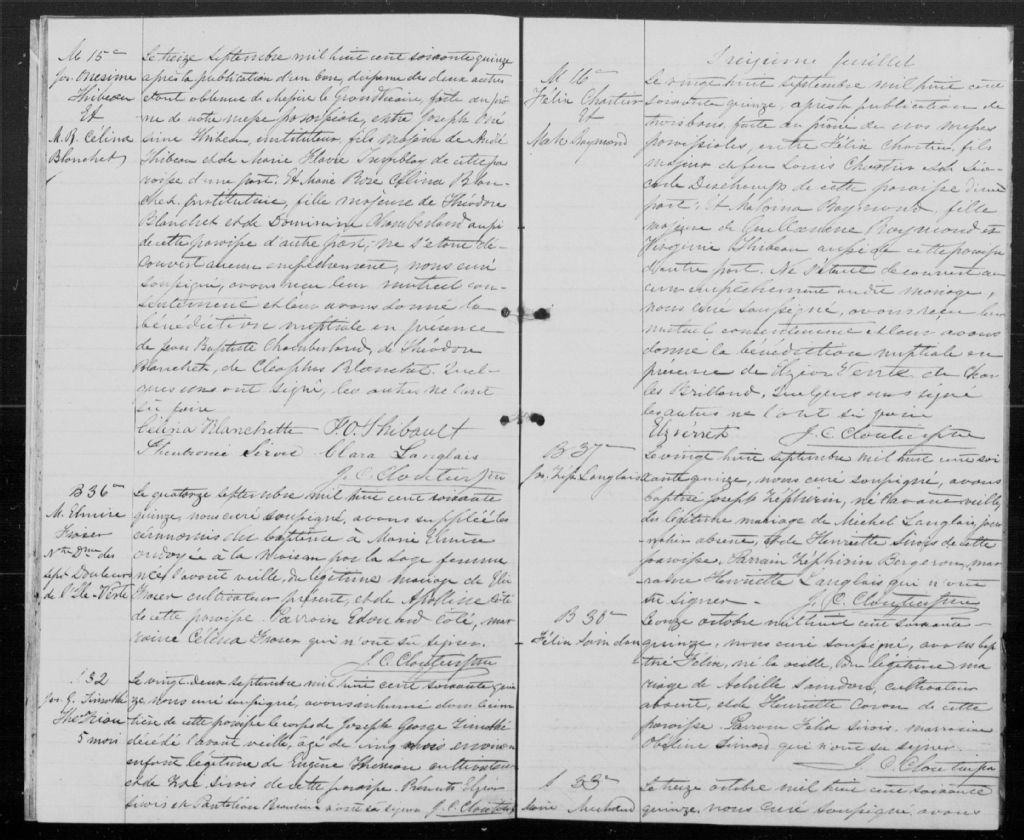 M 15e
Jos. Onesime
Thibeau
Et
M. R. Célina
Blanchet
Le treize septembre mil huit cent soixante quinze
après la publication d'un ban, dispense des deux autres
étant obtenue de le Grand Vicaire, faite au prô
ne de notre messe paroissiale, entre Joseph Oné
sime Thibeau, instituteur, fils majeur de
Thibeau et de Marie Flavie Tremblay de cette pa
roisse d'une part. Et Marie Rose Célina Blan-
chet institutrice, fille majeure de Théodore
Blanchet et de Domitime Chamberland aussi
de cette paroisse d'autre part, ne s'étant dé-
couvert aucun empêchement, nous curé
soussigné, avons reçu leur mutuel con-
sentement et leur avons donné la
bénédiction nuptiale en présence
de Jean Baptiste Chamberland, de Théodore
Blanchet, de Cléophas Blanchet. Quel-
ques uns ont signé, les autres ne l'ont
su faire
Célina Blanchette F. O. Thibault
Sirois Clara Langlais
J. C. Cloutier ptre
B 36e
M. Elmire
Fraser
Ntre Dme des
sept Douleurs
de l'Ile-Verte
Le quatorze septembre mil huit cent soixante
quinze, nous curé soussigné, avons suppléé les
cérémonies du baptême à Marie Elmire
ondoyée à la maison par la sage femme
née l'avant veille, du légitime mariage de
Fraser cultivateur présent, et de Apolline Côté
de cette paroisse. Parrain Edouard Côté, mar
raine Célina Fraser qui n'ont su signer.
J. C. Cloutier ptre
S 32
Jos. G. Timothé
Thériau
5 mois
Le vingt deux septembre mil huit cent soixante quin
ze nous curé soussigné, avons inhumé dans le cime
tière de cette paroisse le corps de Joseph George Timothé
décédé l'avant veille, âgé de cinq mois environ
enfant légitime de Eugène Thériau cultivateur
et de Zoé Sirois de cette paroisse. Présents Elzear
Sirois et Pantaléon n'ont su signer J. C. Cloutier ptre
Treizieme feuillet
M 16e
Félix Chartier
Et
Raymond
Le vingt huit septembre mil huit cent
soixante quinze, après la publication de
trois bans, faite au prône de nos messes
paroissiales, entre Félix Chartier, fils
majeur de feu Louis Chartier et de
Deschamps de cette paroisse d'une
part; Et Malvina Raymond, fille
majeure de Guillaume Raymond et
Virginie Thibeau aussi de cette paroisse
d'autre part. Ne s'étant découvert au
cun empêchement au dit mariage,
nous curé soussigné, avons reçu leur
mutuel consentement et leur avons
donné la bénédiction nuptiale en
présence de de Char
les Brilland. Quelques uns signé
les autres ne l'ont su faire
J. C. Cloutier ptre
B 37e
Jos. Zéph. Langlais
Le vingt huit septembre mil huit cent soi
xante quinze, nous curé soussigné, avons
baptisé Joseph Zéphirin, né l'avant-veille,
du légitime mariage de Michel Langlais, jour
nalier absent, et de Henriette Sirois de cette
paroisse. Parrain Zéphirin Bergeron, mar
raine Henriette Langlais qui n'ont
su signer.
J. C. Cloutier ptre
B 38e
Félix Saindon
Le onze octobre mil huit cent soixante-
quinze, nous curé soussigné, avons bap
tisé Félix, né la veille, du légitime ma
riage de Achille Saindon, cultivateur
absent, et de Henriette Caron de cette
paroisse. Parrain Félix Sirois, marraine
Obéline Simard qui n'ont su signer.
J. C. Cloutier ptre
S 33e
Marie Michaud
Le treize octobre mil huit cent soixante
quinze, nous curé soussigné, avons